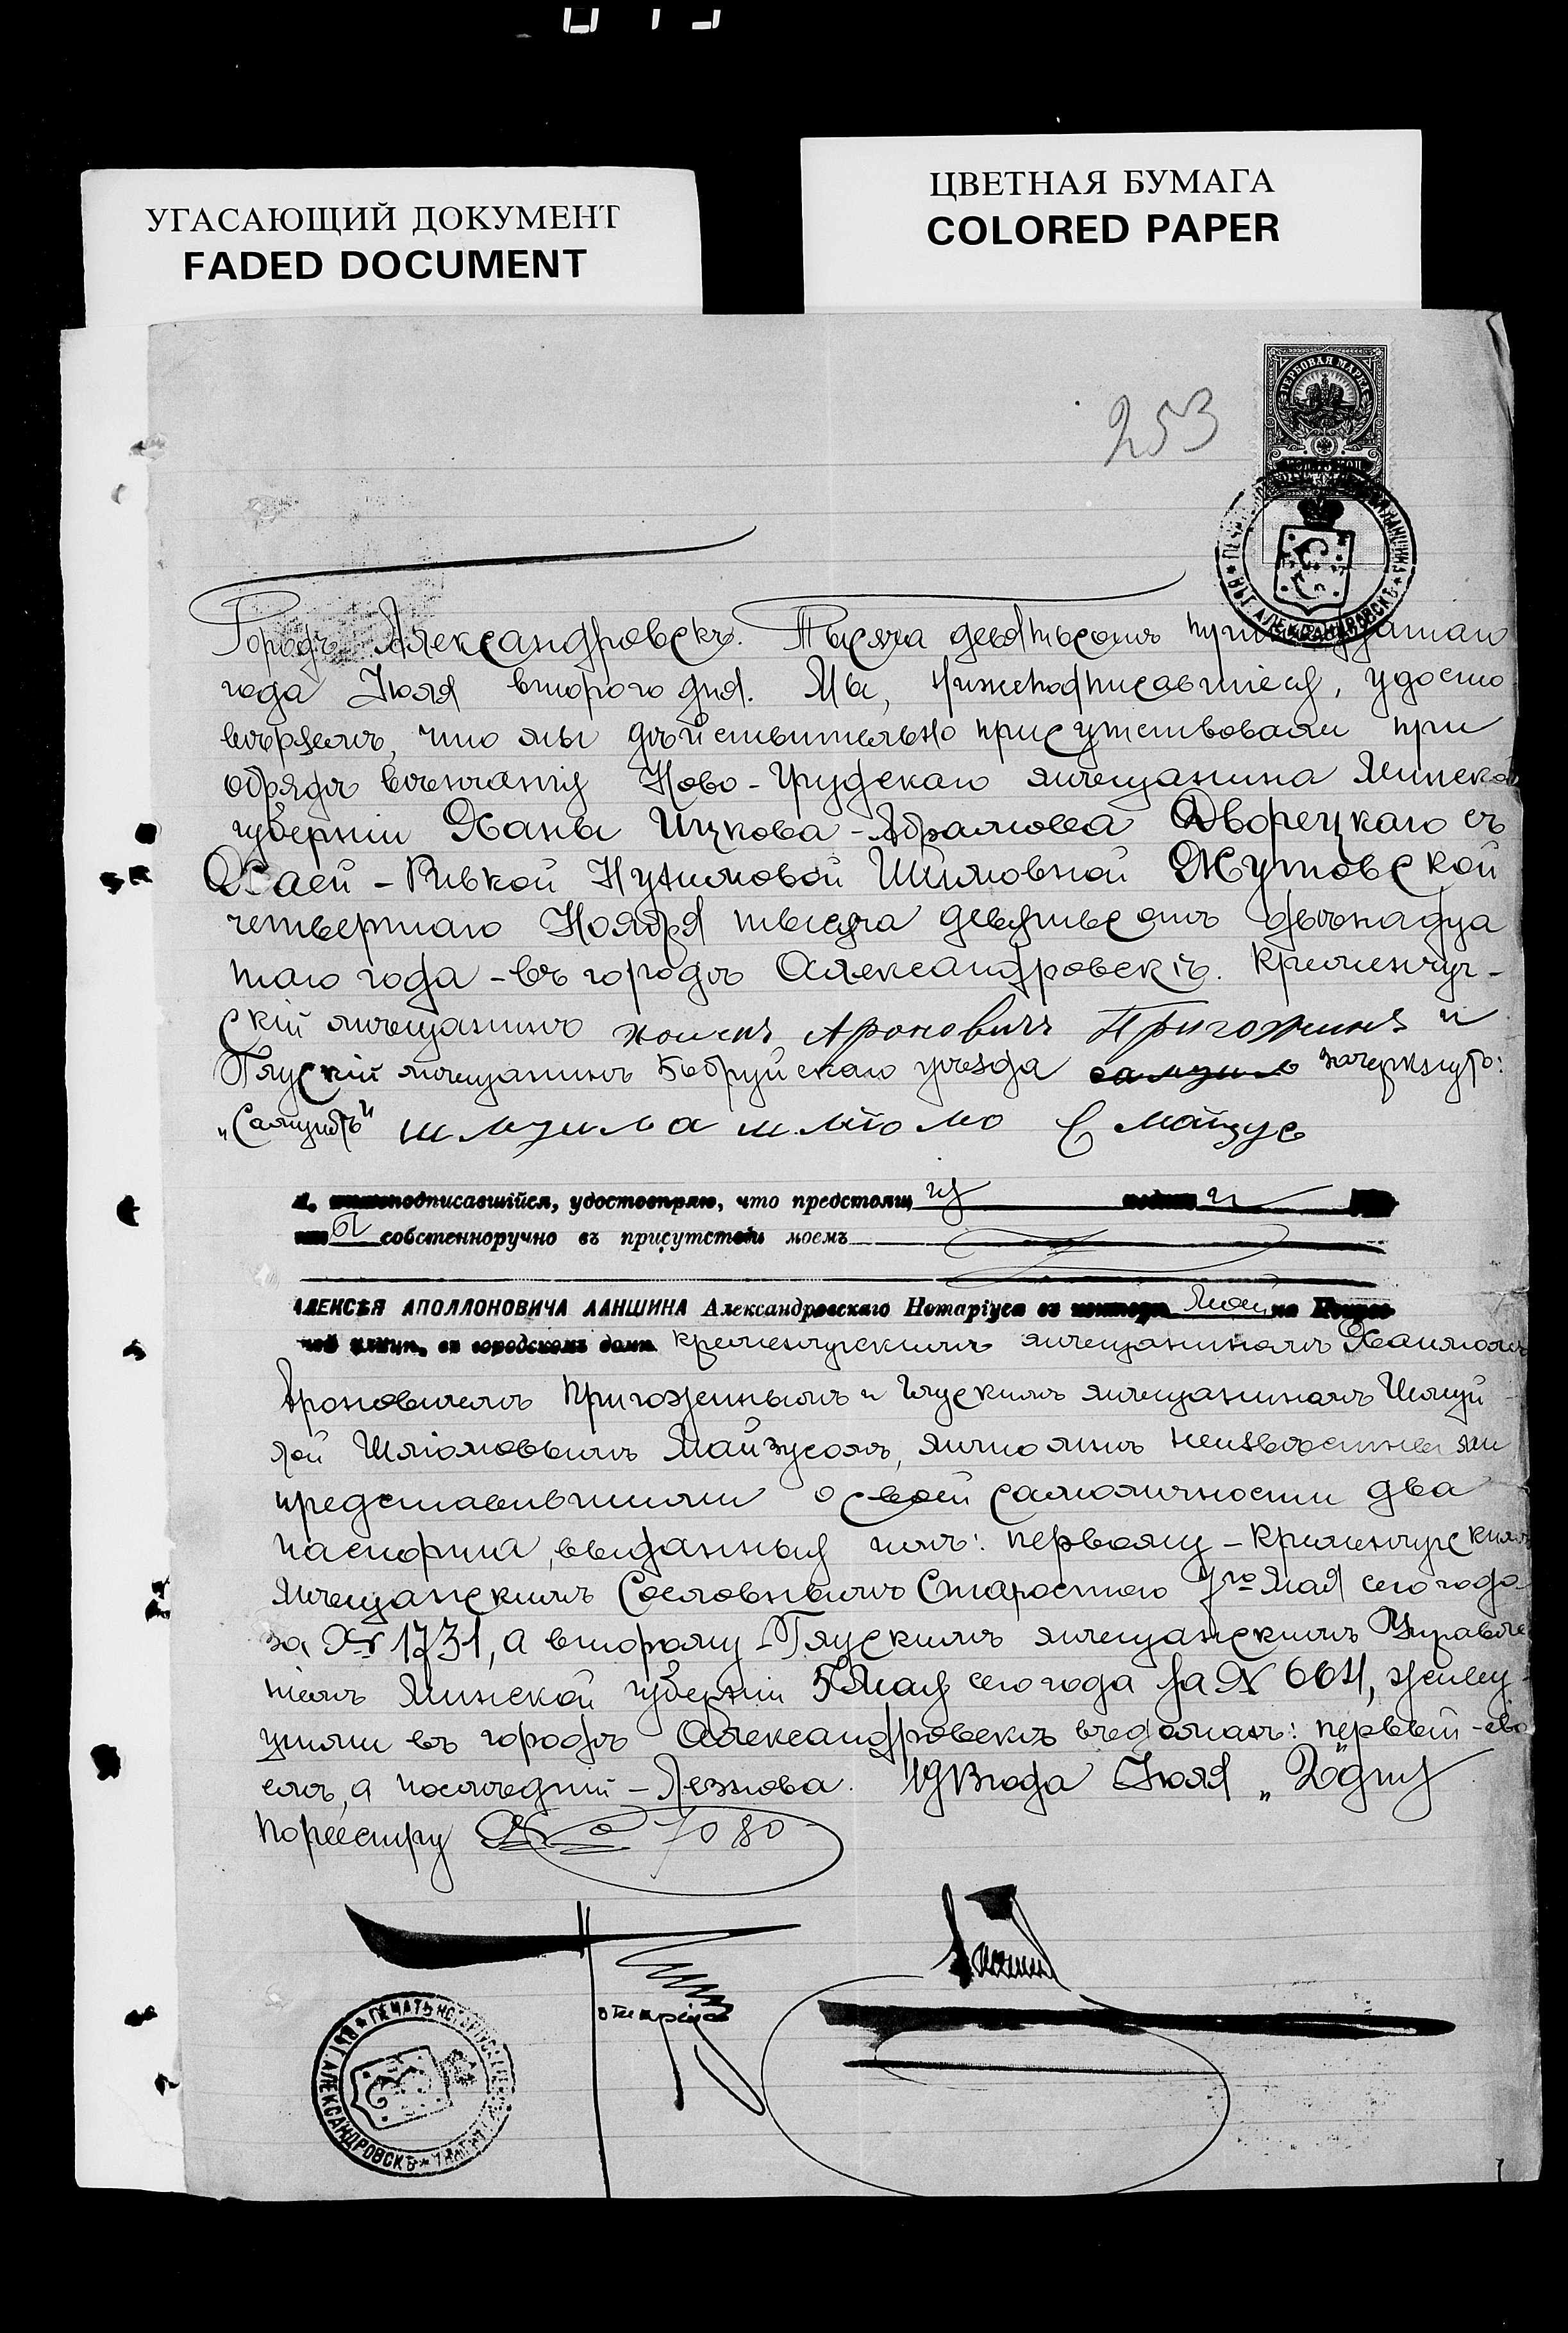 УГАСАЮЩИЙ ДОКУМЕНТ
FADED DOCUMENT
ЦВЕТНАЯ БУМАГА
COLORED PAPER
253
ГЕРБОВАЯ МАРКА
ВЪ Г. АЛЕКСАНДРОВСКѢ
Городъ Александровскъ. Тысяча девятьсотъ
года Іюля второго дня. Мы, нижеподписавшіеся, удосто
вѣряемъ, что мы дѣйствительно присутствовали при
обрядѣ вѣнчанія Ново-Грудскаго мѣщанина Минской
губерніи Ханы Ицкова-Абрамова Дворецкаго съ
Хаей-Ривкой Нухимовой Шимовной Жутовской
четвертаго Ноября тысяча девятьсотъ двѣнадца
таго года - въ городѣ Александровскѣ. Кременчуг-
скій мѣщанинъ Хаимъ Ароновичъ Пригожинъ и
Глускій мѣщанинъ Бобруйскаго уѣзда зачеркнуто:
Шмуила Шліомо Майзусъ
Я, нижеподписавшійся, удостовѣряю, что предстоящія подписи
собственноручно въ присутствіи моемъ
АЛЕКСѢЯ АПОЛЛОНОВИЧА ЛАНШИНА Александровскаго Нотаріуса въ конторѣ моей на
ной улицѣ, въ городскомъ домѣ Кременчугскимъ мѣщаниномъ Хаимомъ
Ароновичемъ Пригожинымъ и Глускимъ мѣщаниномъ Шмуй
лой Шліомовымъ Майзусомъ, мнѣ лично неизвѣстными
представившими о своей самоличности два
паспорта, выданныя имъ: первому - Кременчугскимъ
Мѣщанскимъ Сословнымъ Старостою 7го Мая сего года
за № 1731, а второму - Глускимъ мѣщанскимъ Управле
ніемъ Минской губерніи 5 Мая сего года за № 664, живу-
щими въ городѣ Александровскѣ въ домахъ: первый - сво
емъ, а послѣдній - Лезнова. 1913 года Іюля „2" дня
По реестру № 7080
Нотаріусъ
Ланшинъ
ПЕЧАТЬ НОТАРІУСА
ВЪ Г. АЛЕКСАНДРОВСКѢ